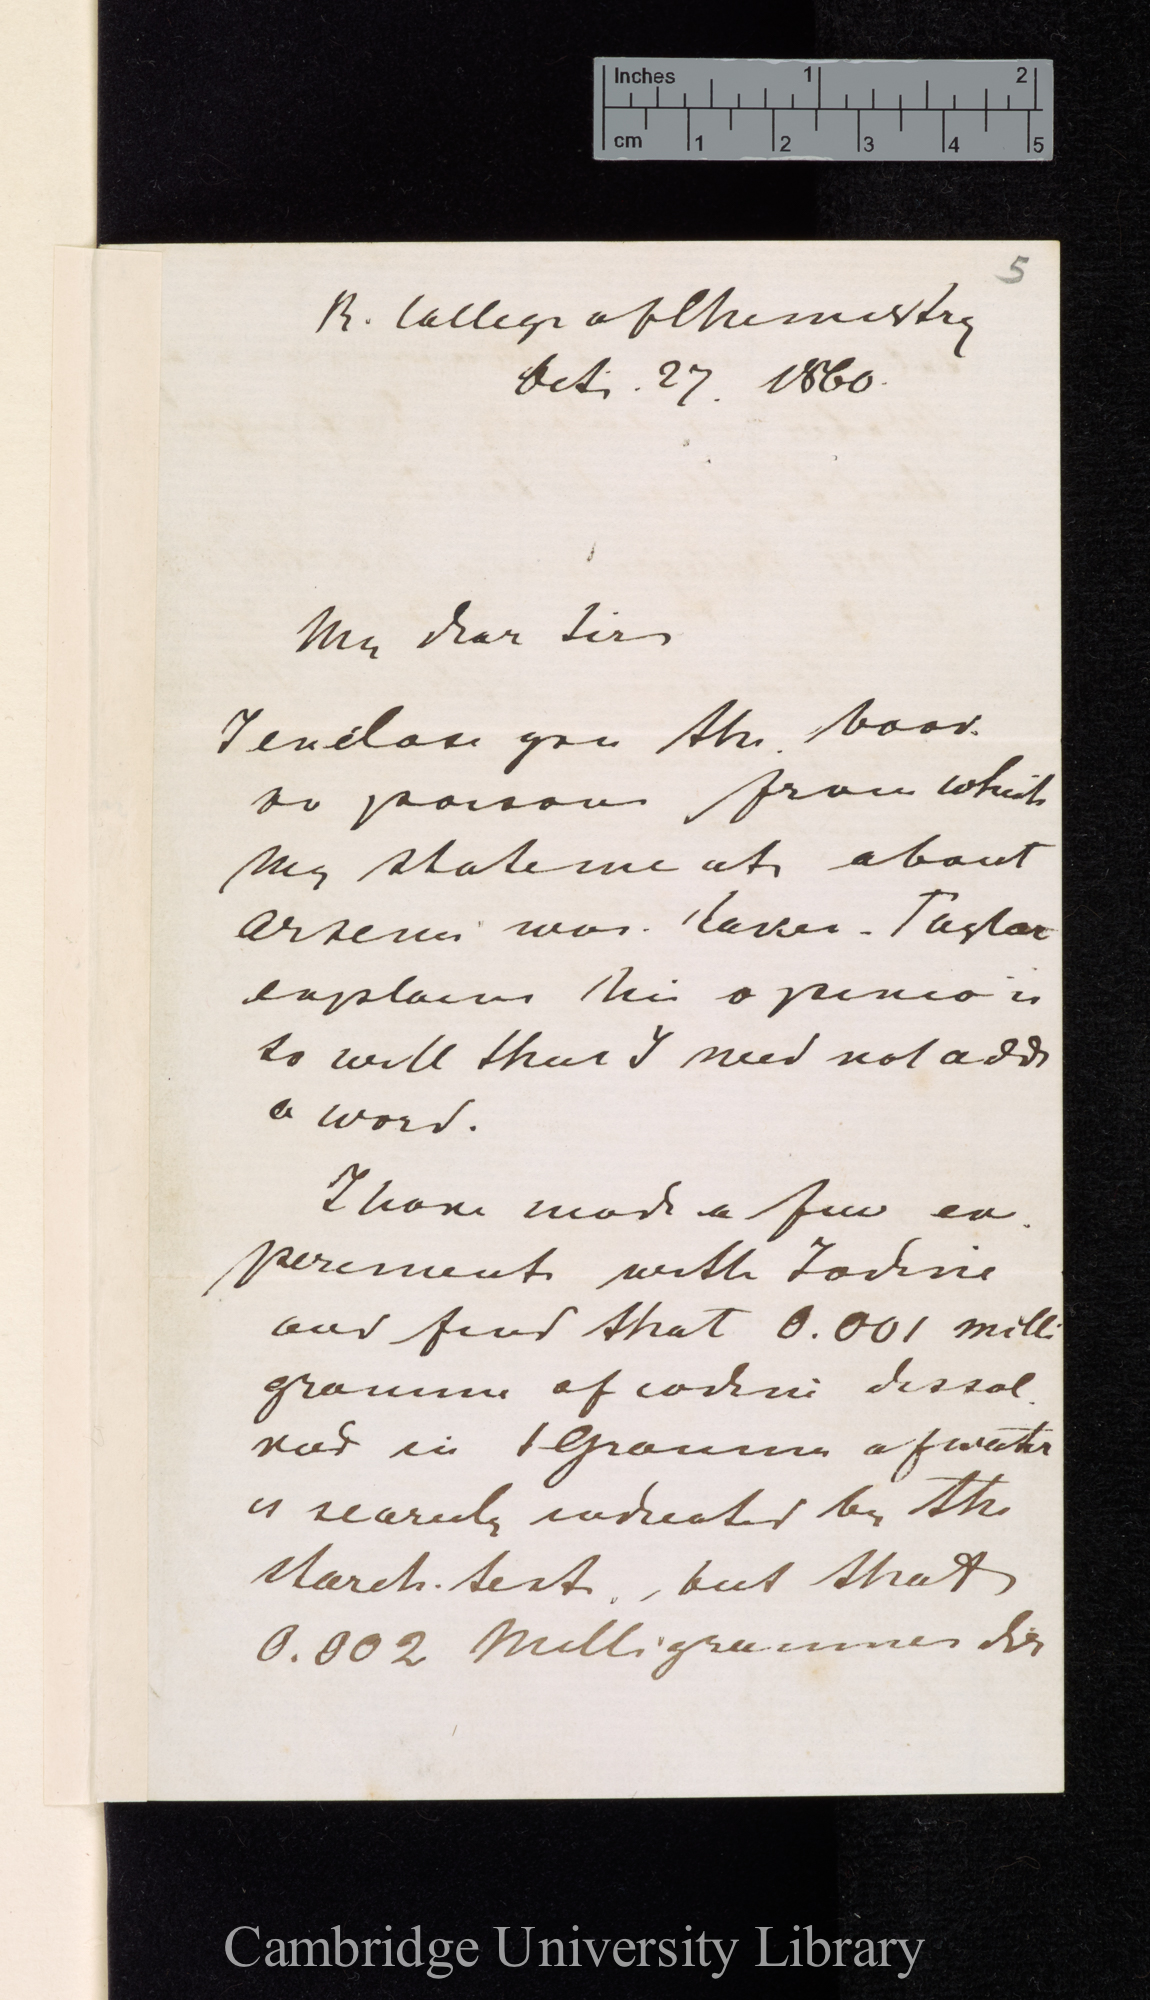 Inches 1 2
cm 1 2 3 4 5
5
R. College of Chemistry
Oct. 27. 1860.
My dear Sir
I enclose you the book
on poisons from which
my statements about
arsenic was taken. Taylor
explains his opinion
so well that I need not add
a word.
I have made a few ex-
periments with Iodine
and find that 0.001 milli
gramme of iodine dissol-
ved in 1 Gramme of water
is scarcely indicated by the
starch-test, but that
0.002 Milligrammes dis
Cambridge University Library